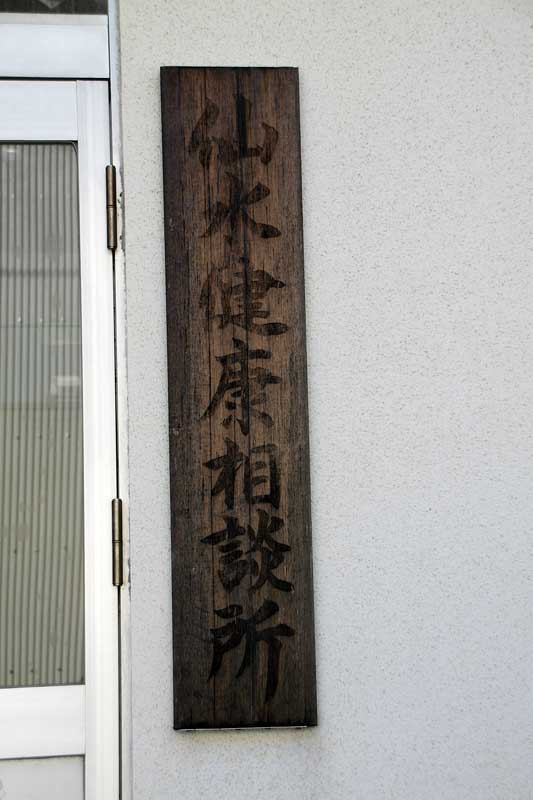 仙水健康相談所